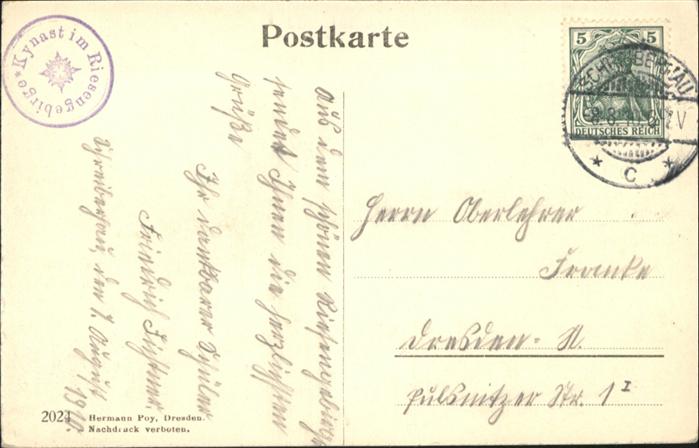 Postkarte
Kynast im Riesengebirge
5 5
DEUTSCHES REICH
SCHREIBERHAU
C
Aus dem schönen Riesengebirge
sendet Ihnen die herzlichsten
Grüße
Ihr dankbarer Schüler
Friedrich
Schreiberhau, den 7. August 1910.
Herrn Oberlehrer
Franke
Dresden-N.
Pulsnitzer Str. 1 I
2024 Hermann Poy, Dresden.
Nachdruck verboten.